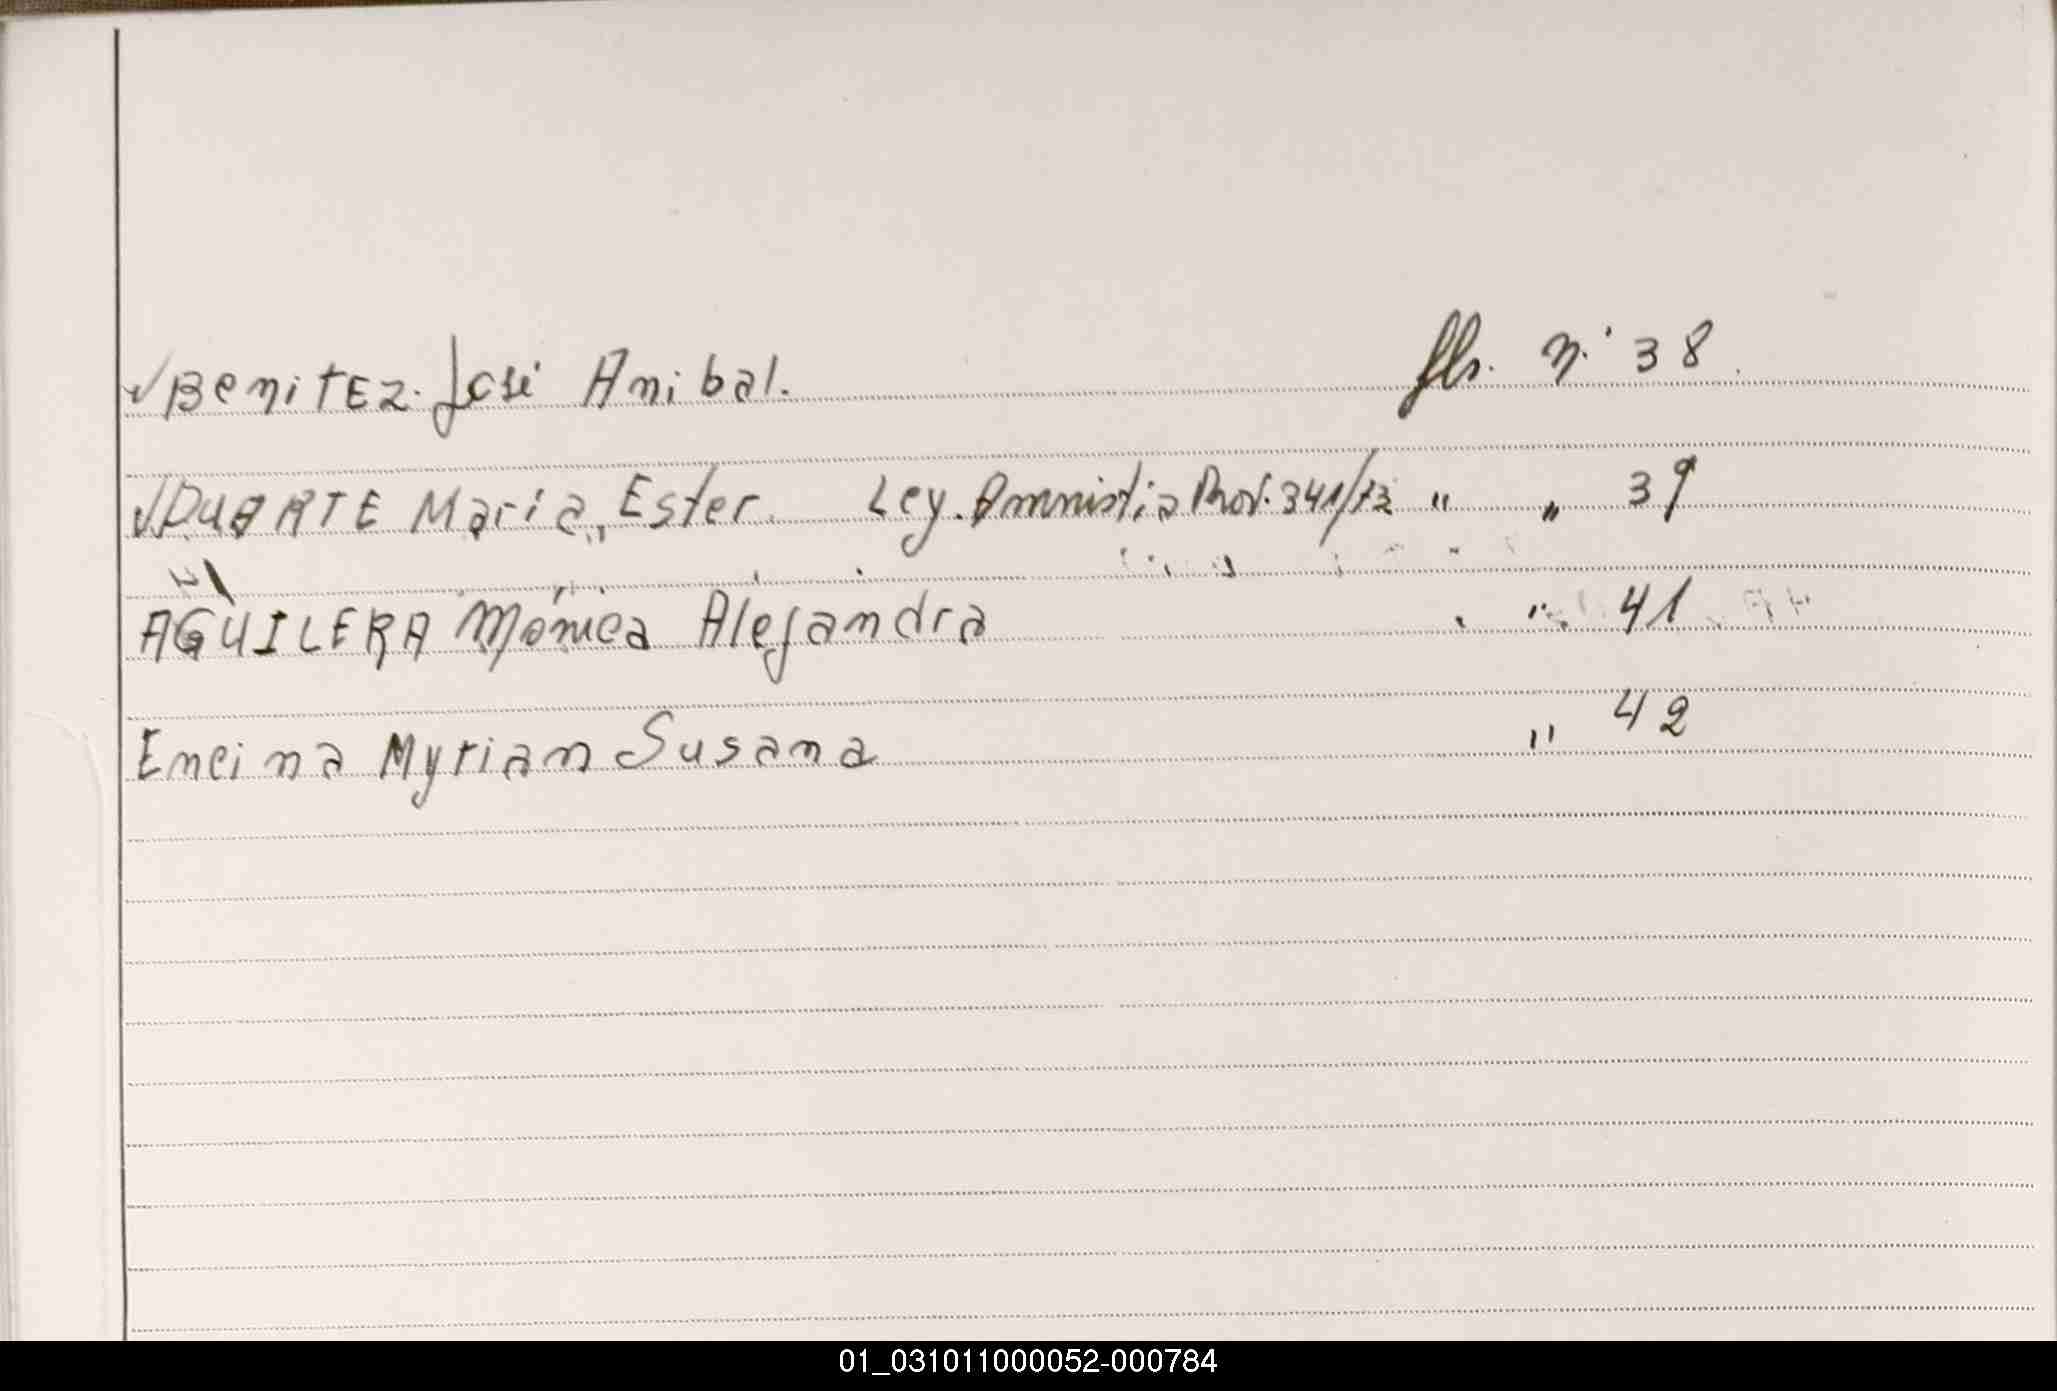 √ Benitez. José Anibal. fls. n.° 38.
√ DUARTE Maria, Ester. Ley. Amnistia Prov. 341/73 " " 39
AGUILERA Mónica Alejandra " 41
Encina Myrian Susana " 42
01_031011000052-000784